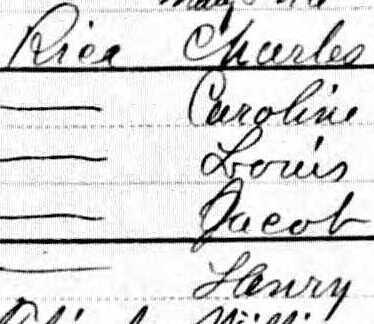 Rice Charles
— Caroline
— Louis
— Jacob
— Henry